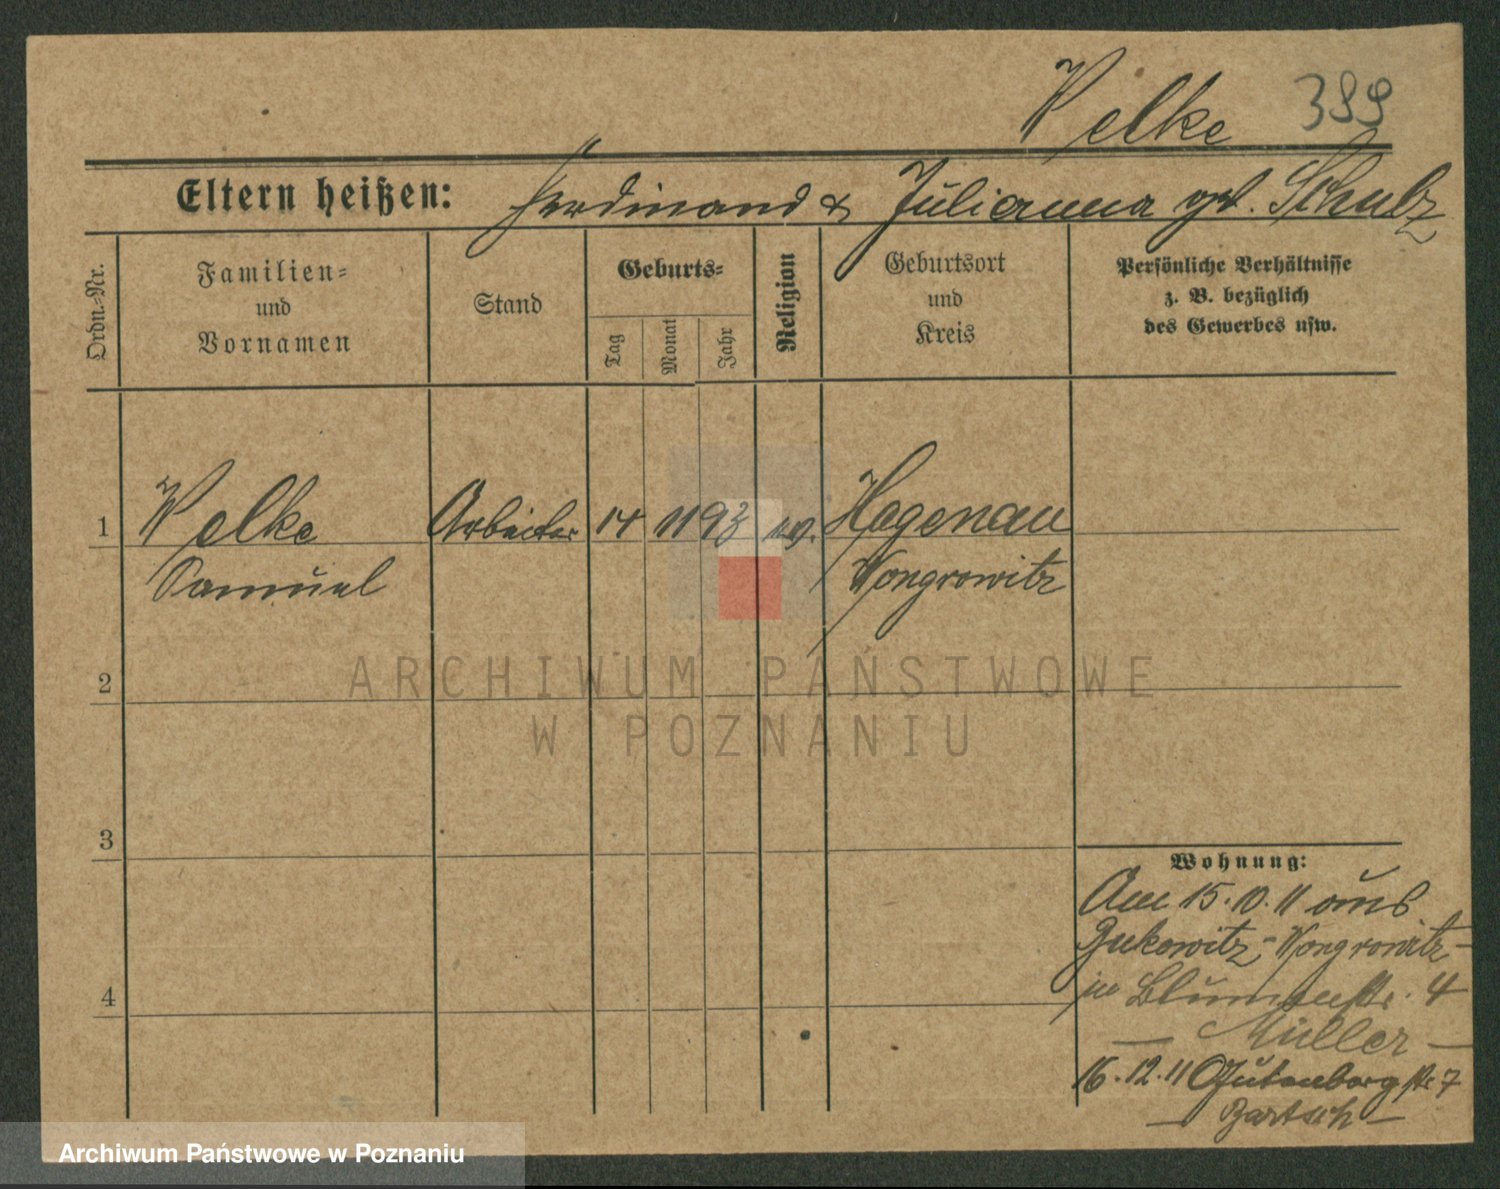 Welke 389
Eltern heißen: Ferdinand & Julianna geb. Schulz
Ordn.-Nr.
Familien-
und
Vornamen
Stand
Geburts-
Tag
Monat
Jahr
Religion
Geburtsort
und
Kreis
Persönliche Verhältnisse
z. B. bezüglich
des Gewerbes usw.
1 Welke Arbeiter 14 11 93 ev. Hagenau
Samuel Wongrowitz
2
3
4
Wohnung:
Am 15.10.11 aus
Bukowitz-Wongrowitz-
in Blumenstr. 4
— Müller —
16.12.11 Gutenbergstr 7
— Bartsch —
ARCHIWUM PAŃSTWOWE
W POZNANIU
Archiwum Państwowe w Poznaniu